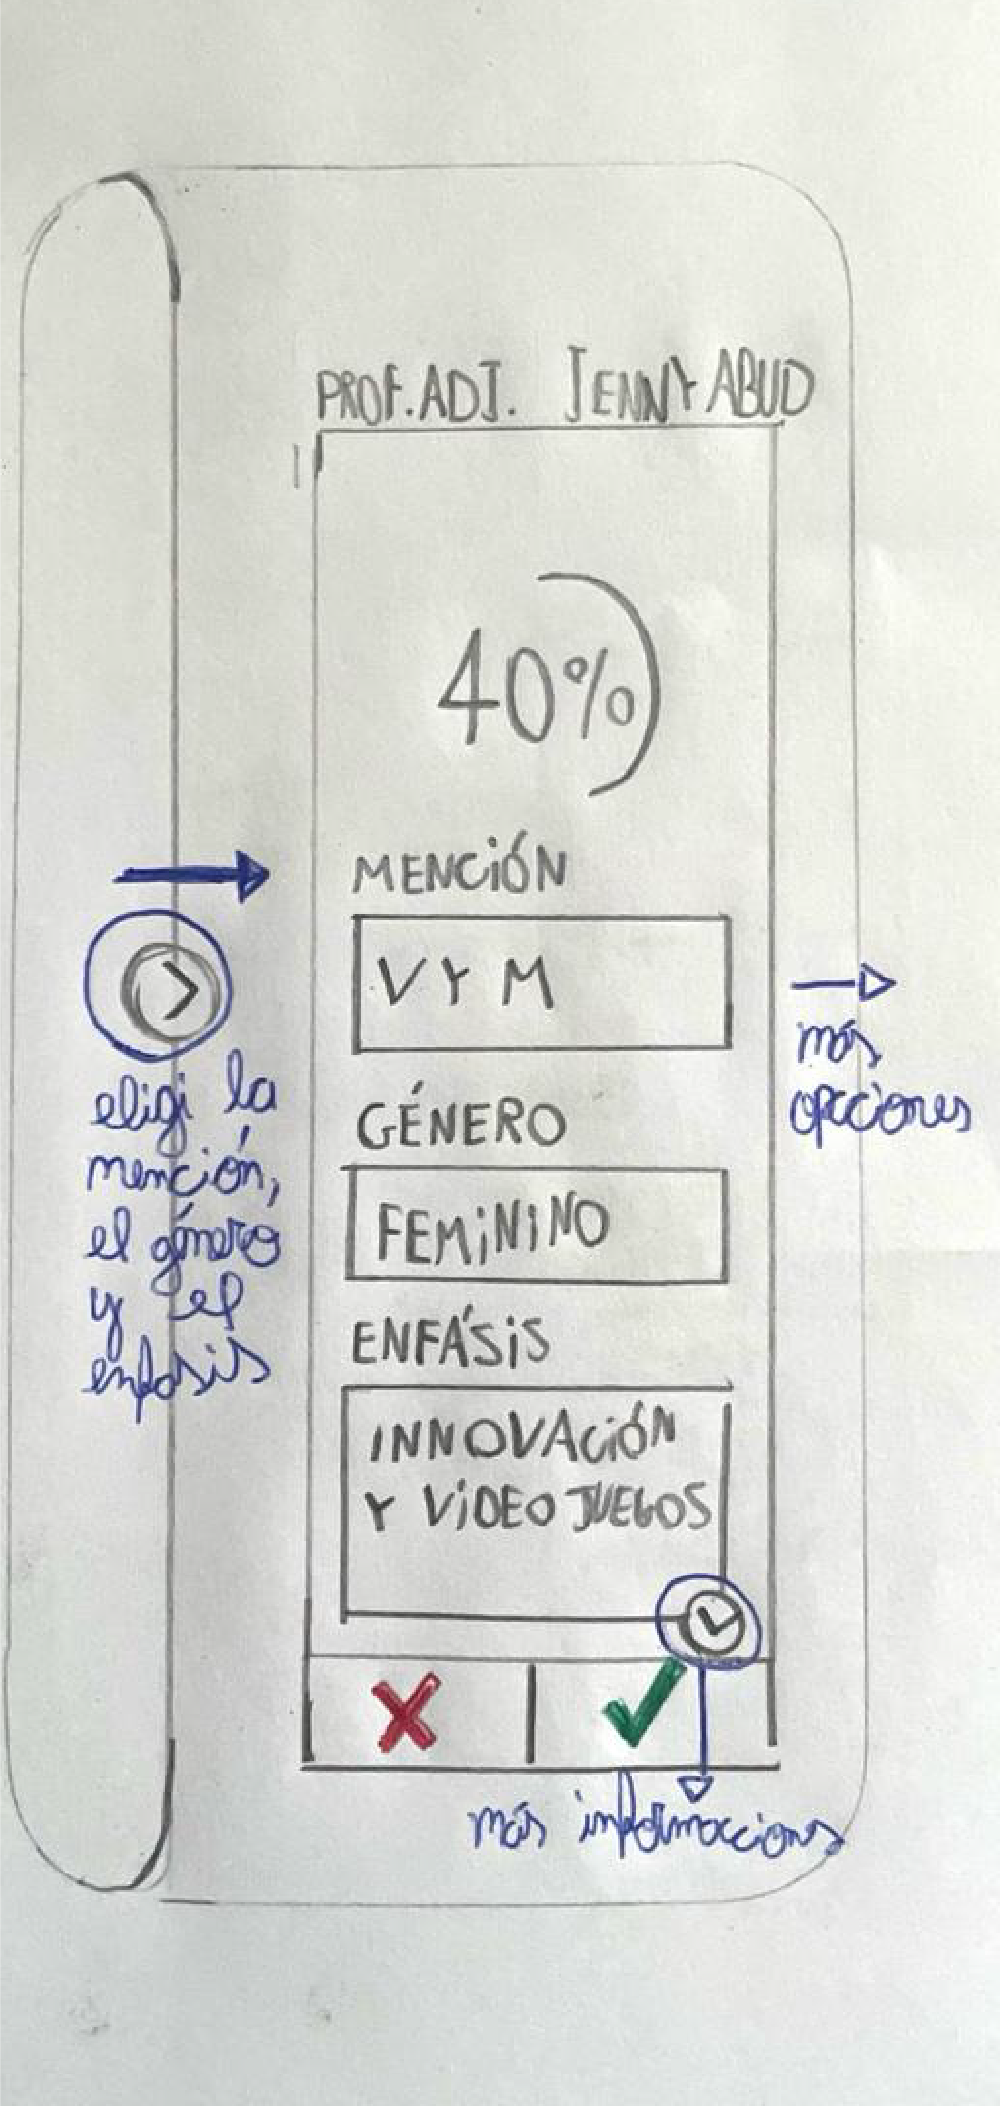 PROF. ADJ. JENNY ABUD
40%
MENCIÓN
V Y M
GÉNERO
FEMININO
ENFÁSIS
INNOVACIÓN
Y VIDEO JUEGOS
eligi la
mención,
el género
y el
enfasis
más
opcciones
más informacciones